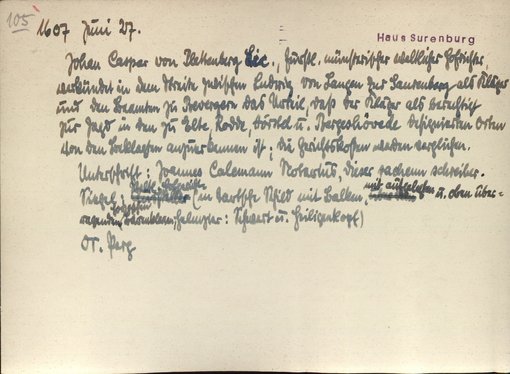 105
1607 Juni 27.
Haus Surenburg
Johan Caspar von Plettenberg Lic., fürstl. münsterischer weltlicher Hofrichter,
verkündet in dem Streite zwischen Ludwig von Langen zur Surenburg als Kläger
und den Beamten zu Bevergern das Urteil, daß der Kläger als berechtigt
zur Jagd in den zu Elte, Rodde, Dörstel u. Bergeshövede designierten Orten
von den Beklagten anzuerkennen ist; die Gerichtskosten werden verglichen.
Unterschrift: Joannes Calemann Notarius, dieser sachenn schreiber.
Siegel: (in tartsche Schild mit Balken, mit aufgelegten u. oben über-
ragenden Bärenklauen, Helmzier: Schwert u. Heiligenkopf)
Or. Perg